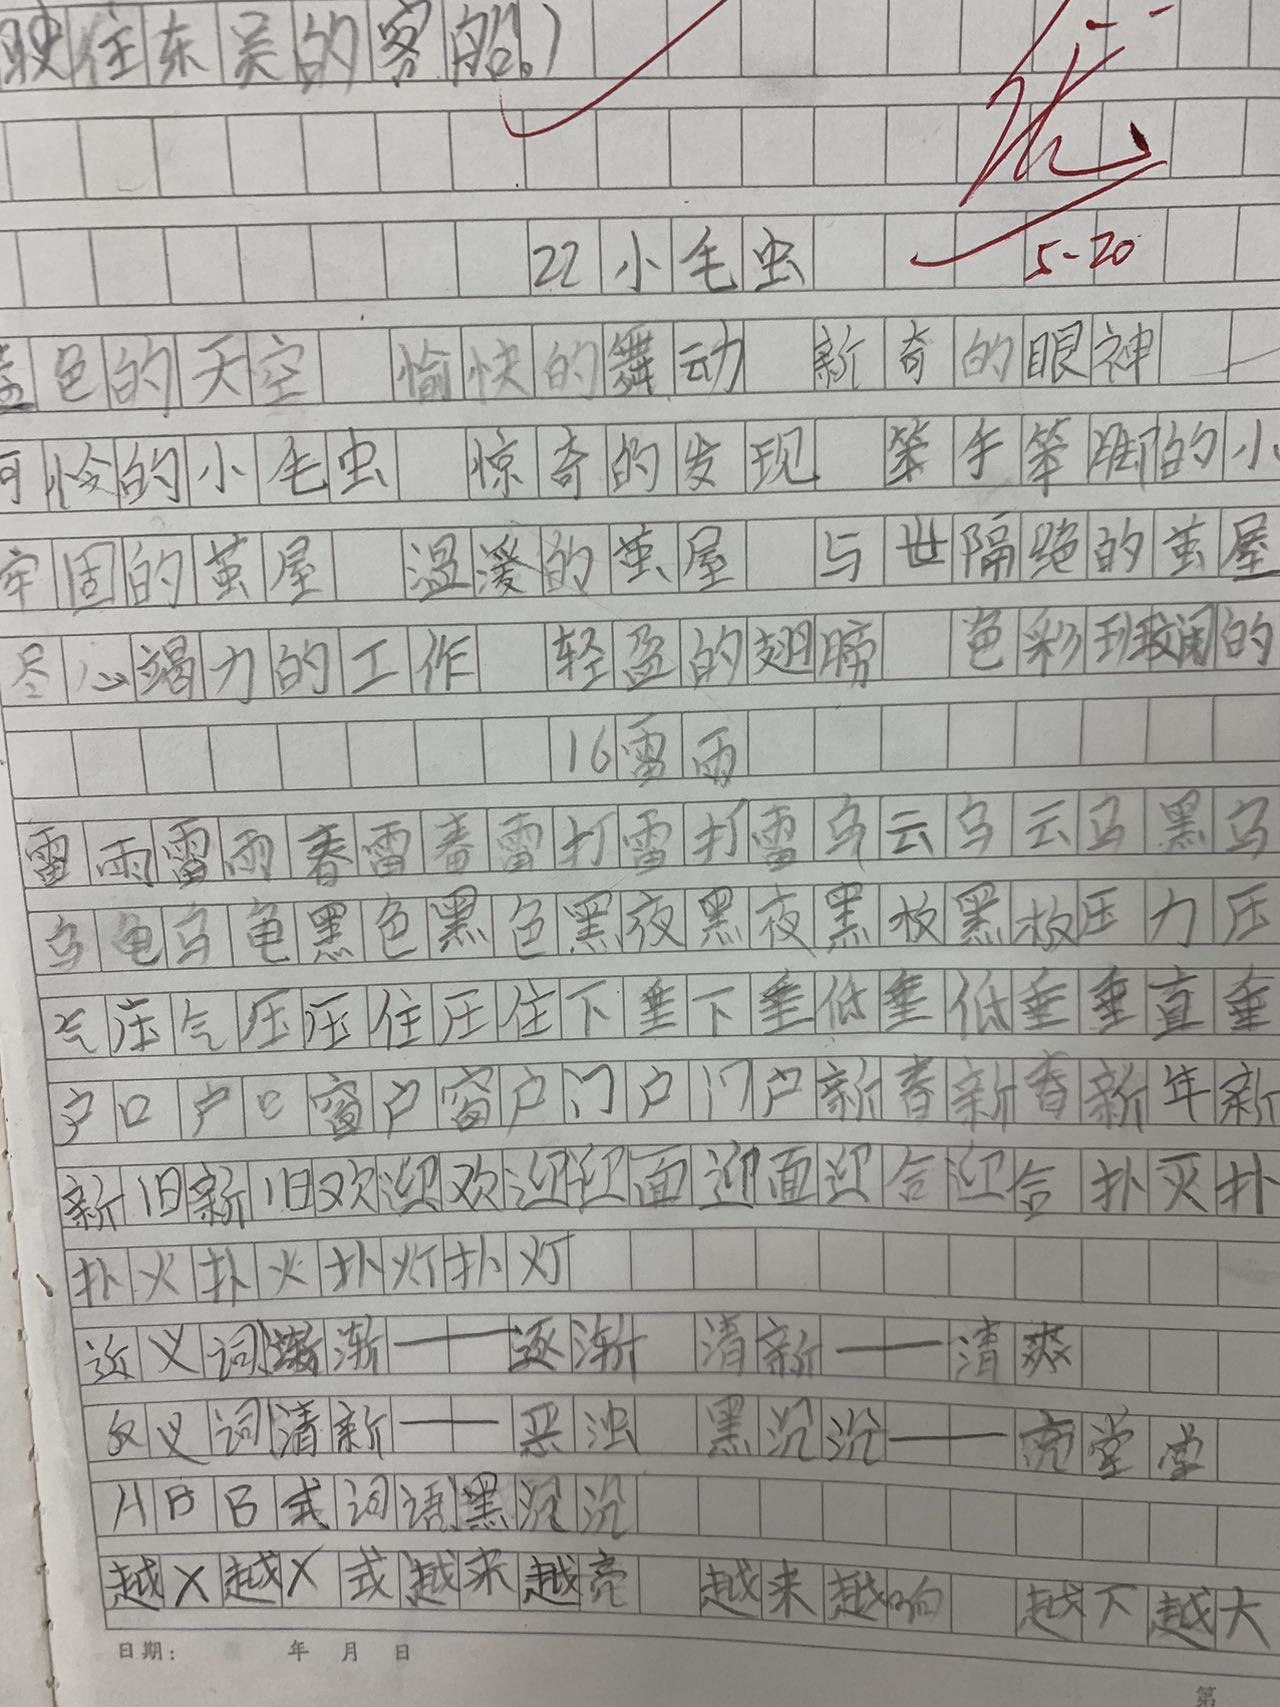 映住东吴的客船。)
优
22小毛虫
5-20
色的天空 愉快的舞动 新奇的眼神
怜的小毛虫 惊奇的发现 笨手笨脚的小
牢固的茧屋 温暖的茧屋 与世隔绝的茧屋
尽心竭力的工作 轻盈的翅膀 色彩斑斓的
16雷雨
雷雨雷雨春雷春雷打雷打雷乌云乌云乌黑乌
乌龟乌龟黑色黑色黑夜黑夜黑板黑板压力压
气压气压压住压住下垂下垂低垂低垂垂直垂
户口户口窗户窗户门户门户新春新春新年新
新旧新旧欢迎欢迎迎面迎面迎合迎合扑灭扑
扑火扑火扑灯扑灯
近义词渐渐——逐渐 清新——清爽
反义词清新——恶浊 黑沉沉——亮堂堂
ABB式词语黑沉沉
越X越X式越来越亮 越来越响 越下越大
日期: 年 月 日
第